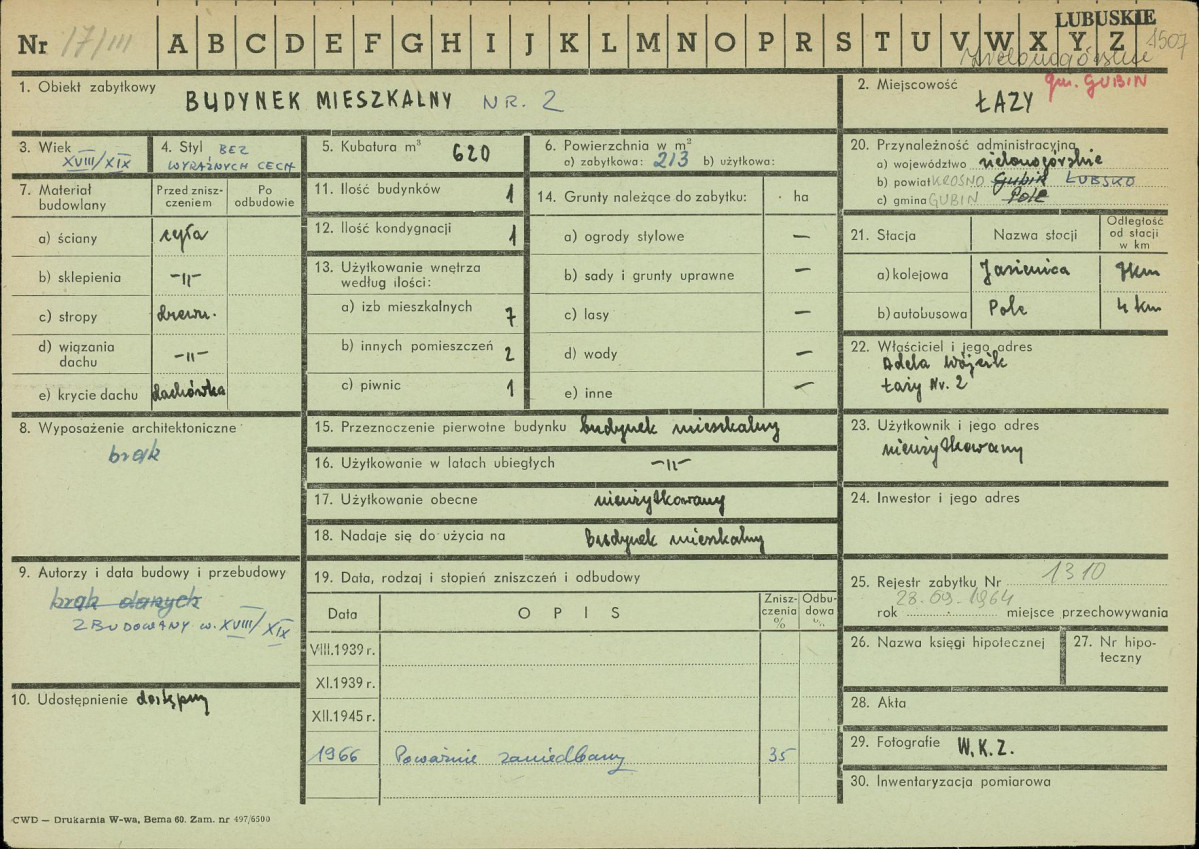 LUBUSKIE
Nr 17/III A B C D E F G H I J K L M N O P R S T U V W X Y Z 1507
Zielonogórskie
1. Obiekt zabytkowy BUDYNEK MIESZKALNY NR. 2
2. Miejscowość gm. GUBIN
ŁAZY
3. Wiek XVIII/XIX
4. Styl BEZ WYRAŹNYCH CECH
5. Kubatura m³ 620
6. Powierzchnia w m²
a) zabytkowa: 213 b) użytkowa:
7. Materiał budowlany
Przed zniszczeniem
Po odbudowie
a) ściany cegła
b) sklepienia —〃—
c) stropy drewn.
d) wiązania dachu —〃—
e) krycie dachu dachówka
8. Wyposażenie architektoniczne
brak
9. Autorzy i data budowy i przebudowy
brak danych
ZBUDOWANY w. XVIII/XIX
10. Udostępnienie dostępny
11. Ilość budynków 1
12. Ilość kondygnacji 1
13. Użytkowanie wnętrza
według ilości:
a) izb mieszkalnych 7
b) innych pomieszczeń 2
c) piwnic 1
14. Grunty należące do zabytku: ha
a) ogrody stylowe —
b) sady i grunty uprawne —
c) lasy —
d) wody —
e) inne —
15. Przeznaczenie pierwotne budynku budynek mieszkalny
16. Użytkowanie w latach ubiegłych —〃—
17. Użytkowanie obecne nieużytkowany
18. Nadaje się do użycia na Budynek mieszkalny
19. Data, rodzaj i stopień zniszczeń i odbudowy
Data O P I S Zniszczenia % Odbudowa %
VIII.1939 r.
XI.1939 r.
XII.1945 r.
1966 Poważnie zaniedbany 35
20. Przynależność administracyjna
a) województwo zielonogórskie
b) powiat KROSNO Gubin LUBSKO
c) gmina GUBIN Pole
21. Stacja Nazwa stacji Odległość od stacji w km
a) kolejowa Jasienica 7km
b) autobusowa Pole 4 km
22. Właściciel i jego adres
Adela Wójcik
Łazy Nr. 2
23. Użytkownik i jego adres
nieużytkowany
24. Inwestor i jego adres
25. Rejestr zabytku Nr 1310
28.09.1964
rok miejsce przechowywania
26. Nazwa księgi hipotecznej
27. Nr hipoteczny
28. Akta
29. Fotografie W.K.Z.
30. Inwentaryzacja pomiarowa
CWD — Drukarnia W-wa, Bema 60. Zam. nr 497/6500